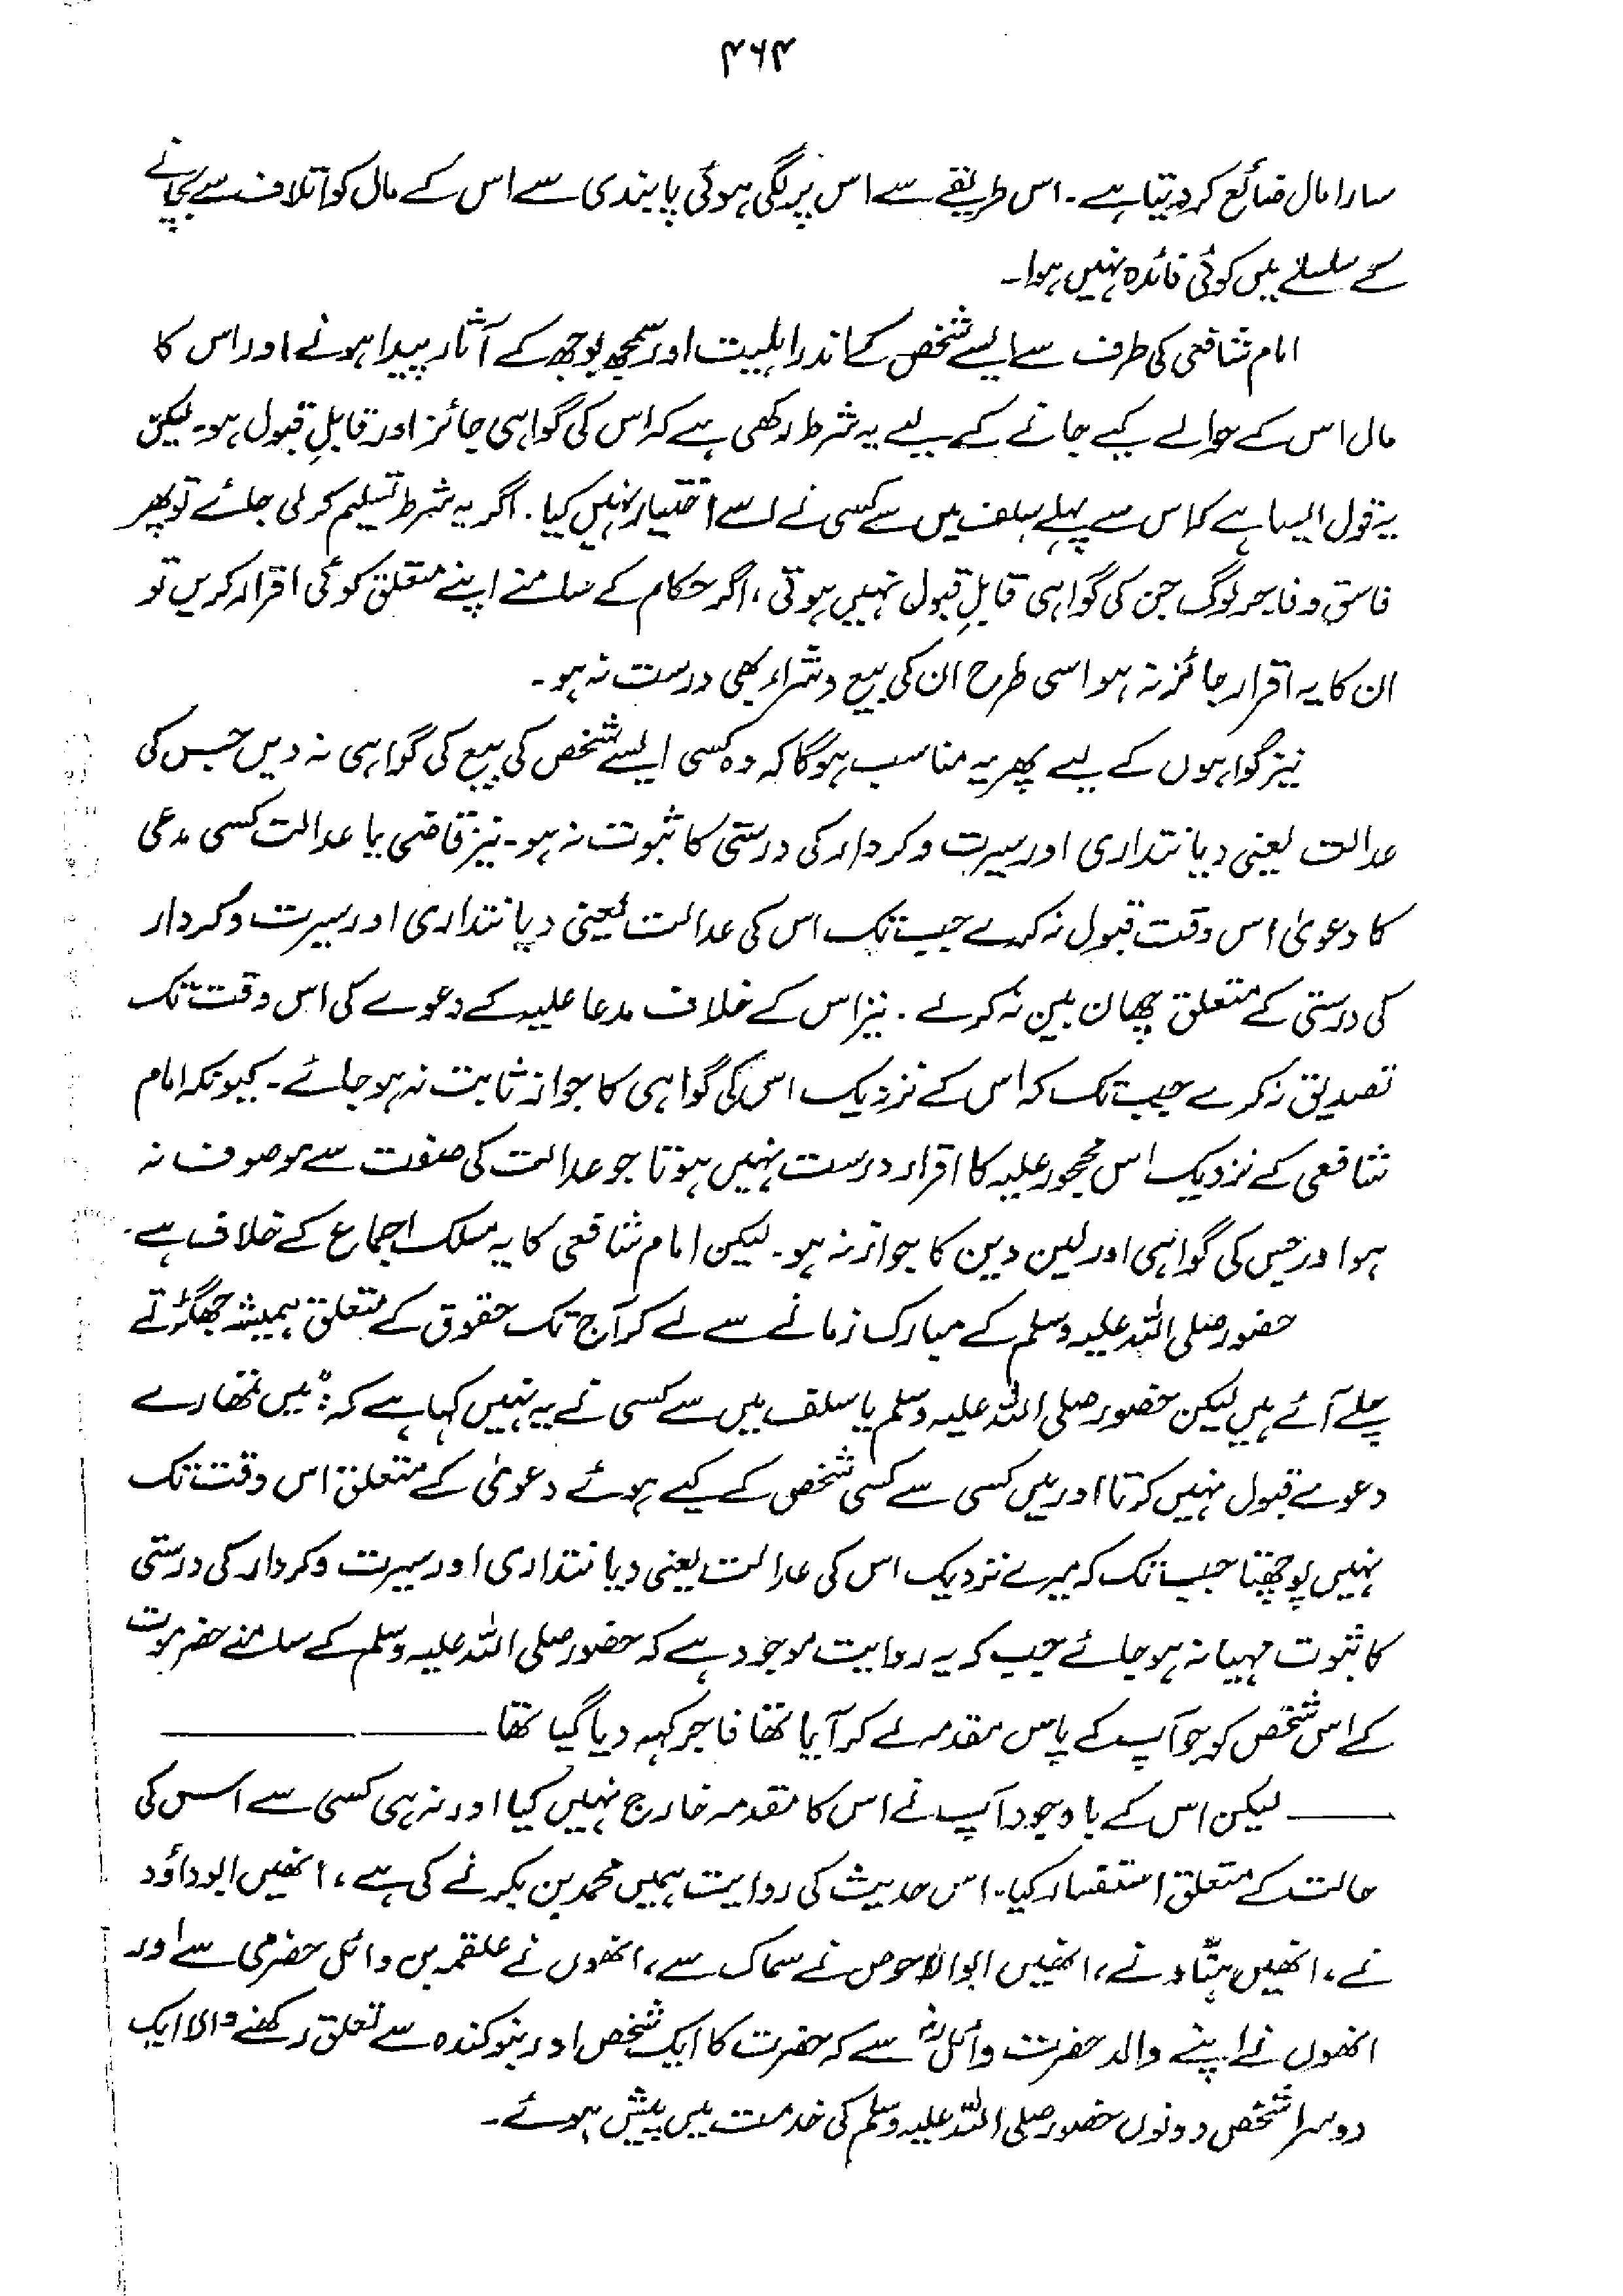 ۴۶۴
سارا مال ضائع کر دیتا ہے۔ اس طریقے سے اس پر لگی ہوئی پابندی سے اس کے مال کو اتلاف سے بچانے
کے سلسلے میں کوئی فائدہ نہیں ہوا۔
امام شافعی کی طرف سے ایسے شخص کے اندر اہلیت اور سمجھ بوجھ کے آثار پیدا ہونے اور اس کا
مال اس کے حوالے کیے جانے کے لیے یہ شرط رکھی ہے کہ اس کی گواہی جائز اور قابلِ قبول ہو۔ لیکن
یہ قول ایسا ہے کہ اس سے پہلے سلف میں سے کسی نے اسے اختیار نہیں کیا۔ اگر یہ شرط تسلیم کر لی جائے تو پھر
فاسق و فاجر لوگ جن کی گواہی قابلِ قبول نہیں ہوتی، اگر حکام کے سامنے اپنے متعلق کوئی اقرار کریں تو
ان کا یہ اقرار جائز نہ ہو اسی طرح ان کی بیع و شراء بھی درست نہ ہو۔
نیز گواہوں کے لیے پھر یہ مناسب ہوگا کہ وہ کسی ایسے شخص کی بیع کی گواہی نہ دیں جس کی
عدالت یعنی دیانتداری اور سیرت و کردار کی درستی کا ثبوت نہ ہو۔ نیز قاضی یا عدالت کسی مدعی
کا دعویٰ اس وقت قبول نہ کرے جب تک اس کی عدالت یعنی دیانتداری اور سیرت و کردار
کی درستی کے متعلق چھان بین نہ کرلے۔ نیز اس کے خلاف مدعا علیہ کے دعوے کی اس وقت تک
تصدیق نہ کرے جب تک کہ اس کے نزدیک اس کی گواہی کا جواز ثابت نہ ہو جائے۔ کیونکہ امام
شافعی کے نزدیک اس محجور علیہ کا اقرار درست نہیں ہوتا جو عدالت کی صفت سے موصوف نہ
ہو اور جس کی گواہی اور لین دین کا جواز نہ ہو۔ لیکن امام شافعی کا یہ مسلک اجماع کے خلاف ہے۔
حضور صلی اللہ علیہ وسلم کے مبارک زمانے سے لے کر آج تک حقوق کے متعلق ہمیشہ جھگڑتے
چلے آئے ہیں لیکن حضور صلی اللہ علیہ وسلم یا سلف میں سے کسی نے یہ نہیں کہا ہے کہ: "میں تمھارے
دعوے قبول نہیں کرتا اور میں کسی سے کسی شخص کے کیے ہوئے دعویٰ کے متعلق اس وقت تک
نہیں پوچھتا جب تک کہ میرے نزدیک اس کی عدالت یعنی دیانتداری اور سیرت و کردار کی درستی
کا ثبوت مہیا نہ ہو جائے جب کہ یہ روایت موجود ہے کہ حضور صلی اللہ علیہ وسلم کے سامنے حضرموت
کے اس شخص کو جو آپ کے پاس مقدمہ لے کر آیا تھا فاجر کہہ دیا گیا تھا ———
— لیکن اس کے باوجود آپ نے اس کا مقدمہ خارج نہیں کیا اور نہ ہی کسی سے اس کی
حالت کے متعلق استفسار کیا۔ اس حدیث کی روایت ہمیں محمد بن بکر نے کی ہے، انھیں ابو داؤد
نے، انھیں ہنّاد نے، انھیں ابوالاحوص نے سماک سے، انھوں نے علقمہ بن وائل حضرمی سے اور
انھوں نے اپنے والد حضرت وائلؓ سے کہ حضرت کا ایک شخص اور بنو کندہ سے تعلق رکھنے والا ایک
دوسرا شخص دونوں حضور صلی اللہ علیہ وسلم کی خدمت میں پیش ہوئے۔